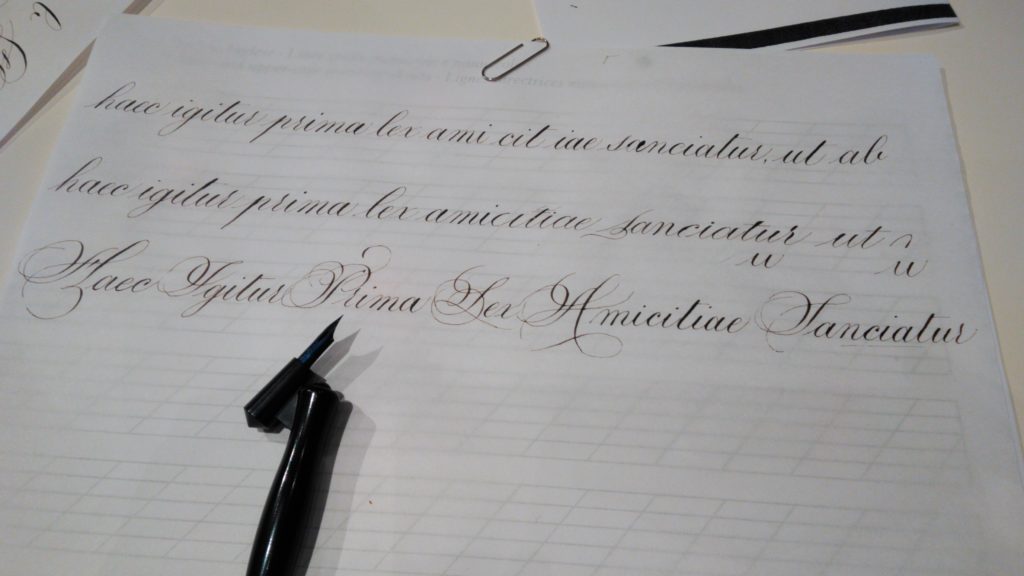 haec igitur prima lex ami cit iae sanciatur, ut ab
haec igitur prima lex amicitiae sanciatur ut
u u
Haec Igitur Prima Lex Amicitiae Sanciatur